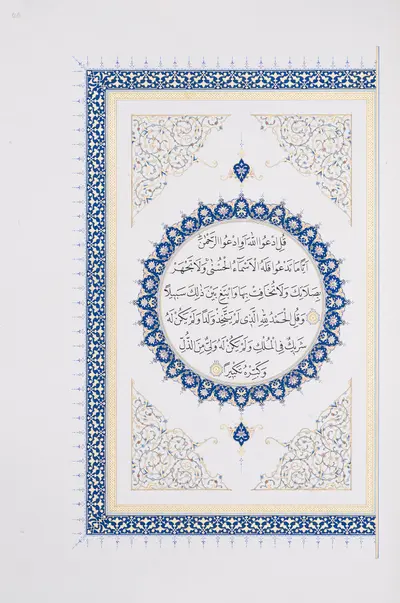 قُلِ ادْعُوا اللَّهَ أَوِ ادْعُوا الرَّحْمَٰنَ
أَيًّا مَا تَدْعُوا فَلَهُ الْأَسْمَاءُ الْحُسْنَىٰ وَلَا تَجْهَرْ
بِصَلَاتِكَ وَلَا تُخَافِتْ بِهَا وَابْتَغِ بَيْنَ ذَٰلِكَ سَبِيلًا
وَقُلِ الْحَمْدُ لِلَّهِ الَّذِي لَمْ يَتَّخِذْ وَلَدًا وَلَمْ يَكُنْ لَهُ
شَرِيكٌ فِي الْمُلْكِ وَلَمْ يَكُنْ لَهُ وَلِيٌّ مِنَ الذُّلِّ
وَكَبِّرْهُ تَكْبِيرًا